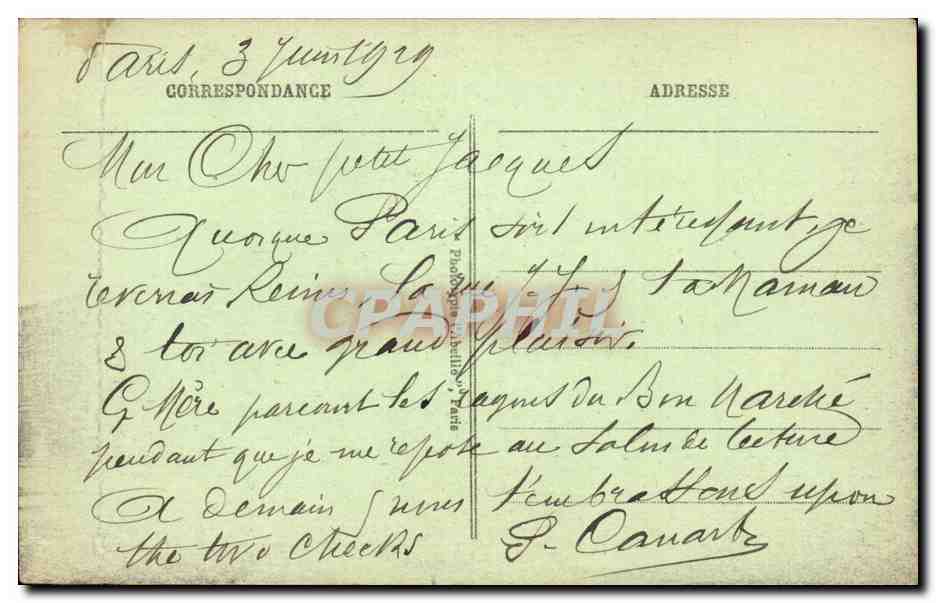 Paris, 3 Juin 1929
CORRESPONDANCE
ADRESSE
Mon Cher petit Jacques
Quoique Paris soit intéressant, je
reverrai Reims, ta Maman
& toi avec grand plaisir.
G Mère parcourt les rayons du Bon Marché
pendant que je me repose au salon de lecture
A demain nous t'embrassons upon
the two cheeks
Phototypie l'Abeille", Paris
CPAPHIL